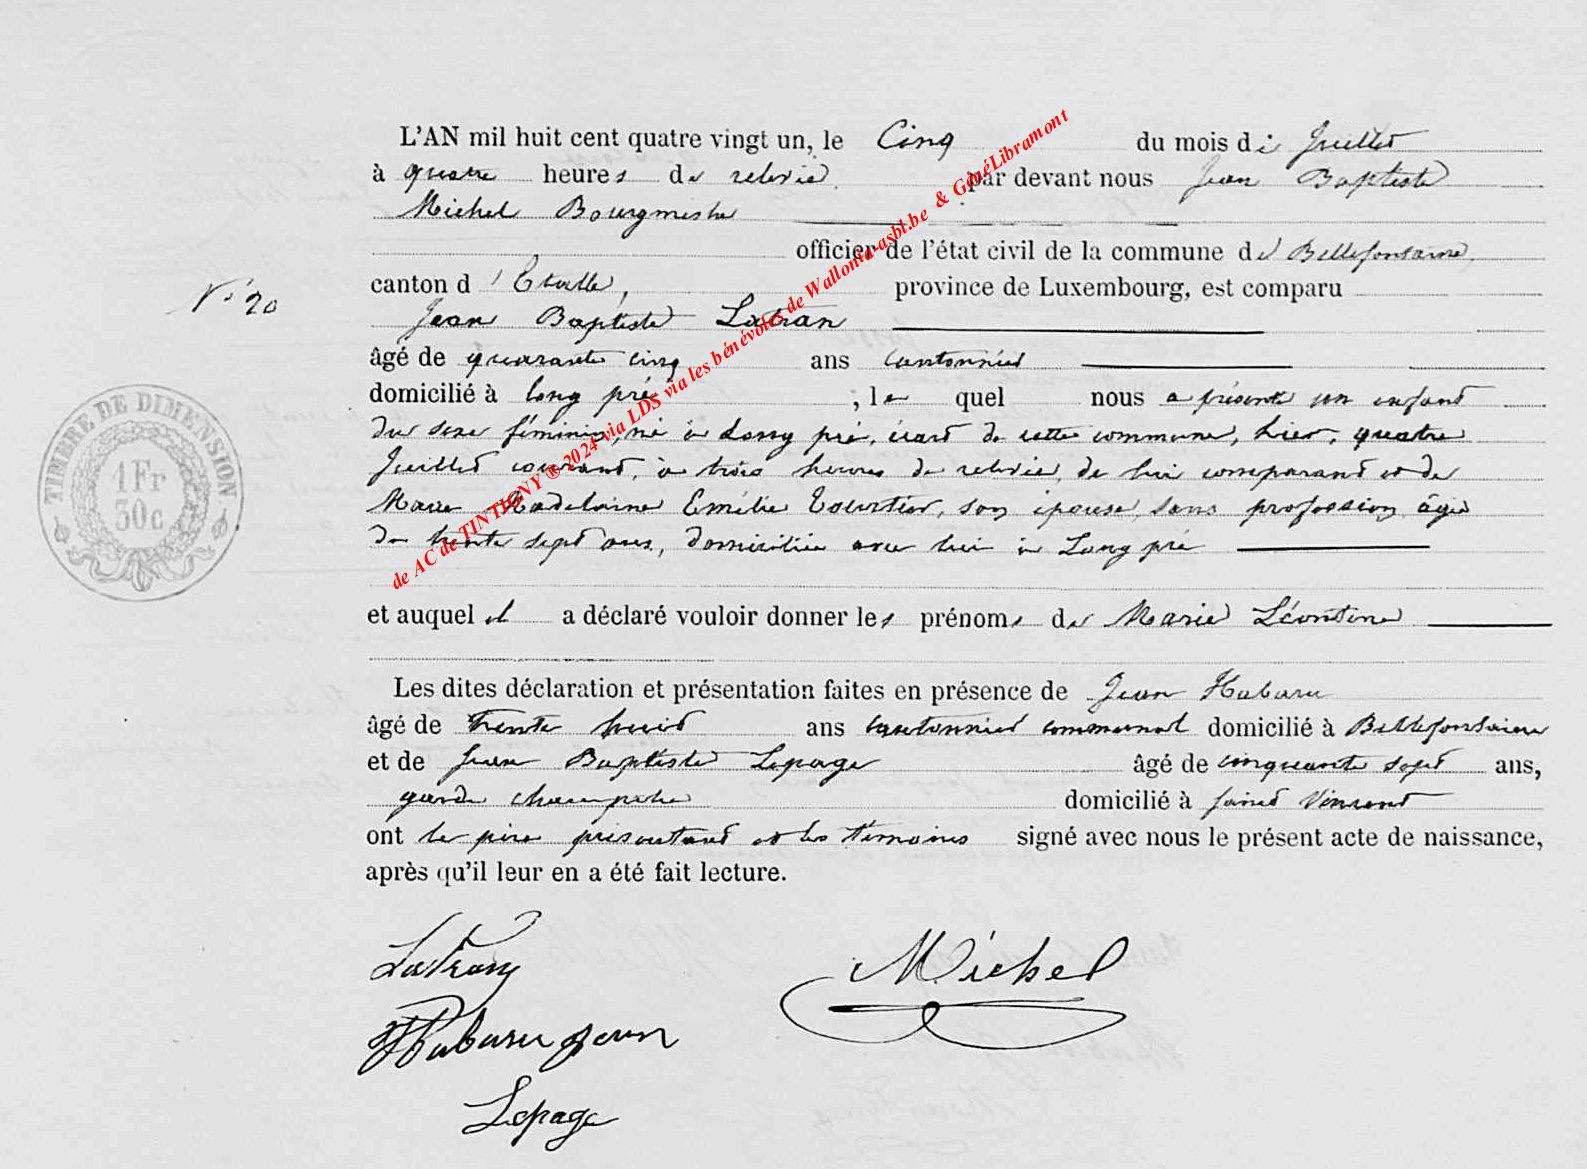 L'AN mil huit cent quatre vingt un, le Cinq du mois de Juillet
à quatre heures de relevée par devant nous Jean Baptiste
Michel Bourgmestre
officier de l'état civil de la commune de Bellefontaine,
canton d'Etalle, province de Luxembourg, est comparu
N° 20
Jean Baptiste Latran
âgé de quarante cinq ans cantonnier
domicilié à Long pré ; le quel nous a présenté un enfant
du sexe féminin, né à Long pré, écart de cette commune, hier, quatre
Juillet courant, à trois heures de relevée, de lui comparant et de
Marie Madelaine Emélie Tourtier, son épouse, sans profession, âgée
de trente sept ans, domiciliée avec lui à Long pré
et auquel il a déclaré vouloir donner les prénoms de Marie Léontine
Les dites déclaration et présentation faites en présence de Jean Habaru
âgé de trente huit ans cantonnier communal domicilié à Bellefontaine
et de Jean Baptiste Lepage âgé de cinquante sept ans,
garde champetre domicilié à Saint Vincent
ont le père présentant et les témoins signé avec nous le présent acte de naissance,
après qu'il leur en a été fait lecture.
Latran
Michel
Habaru Jean
Lepage
TIMBRE DE DIMENSION
1 Fr
30 c
de AC de TINTIGNY ® 2024 via LDS via les bénévoles de Wallonia-asbl.be & GénéLibramont